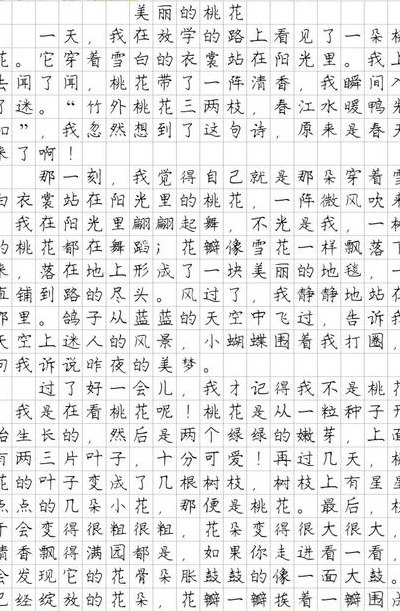 美丽的桃花
一天，我在放学的路上看见了一朵桃
花。它穿着雪白的衣裳站在阳光里。我上
去闻了闻，桃花带了一阵清香，我瞬间入
了迷。“竹外桃花三两枝，春江水暖鸭先
知”，我忽然想到了这句诗，原来是春天
来了啊！
那一刻，我觉得自己就是那朵穿着雪
白衣裳站在阳光里的桃花，一阵微风吹来
我在阳光里翩翩起舞，不光是我，一树
的桃花都在舞蹈；花瓣像雪花一样飘落下
来，落在地上形成了一块美丽的地毯，一
直铺到路的尽头。风过了，我静静地站在
那里。鸽子从蓝蓝的天空中飞过，告诉我
天空上迷人的风景，小蝴蝶围着我打圈，
向我诉说昨夜的美梦。
过了好一会儿，我才记得我不是桃花
我是在看桃花呢！桃花是从一粒种子开
始生长的，然后是两个绿绿的嫩芽，上面
有两三片叶子，十分可爱！再过几天，桃
花的叶子变成了几根树枝，树枝上有星星
点点的几朵小花，那便是桃花。最后，枝
干会变得很粗很粗，花朵变得很大很大，
清香飘得满园都是，如果你走进看一看，
会发现它的花骨朵胀鼓鼓的像一面大鼓。
已经绽放的花朵，花瓣一瓣挨着一瓣围